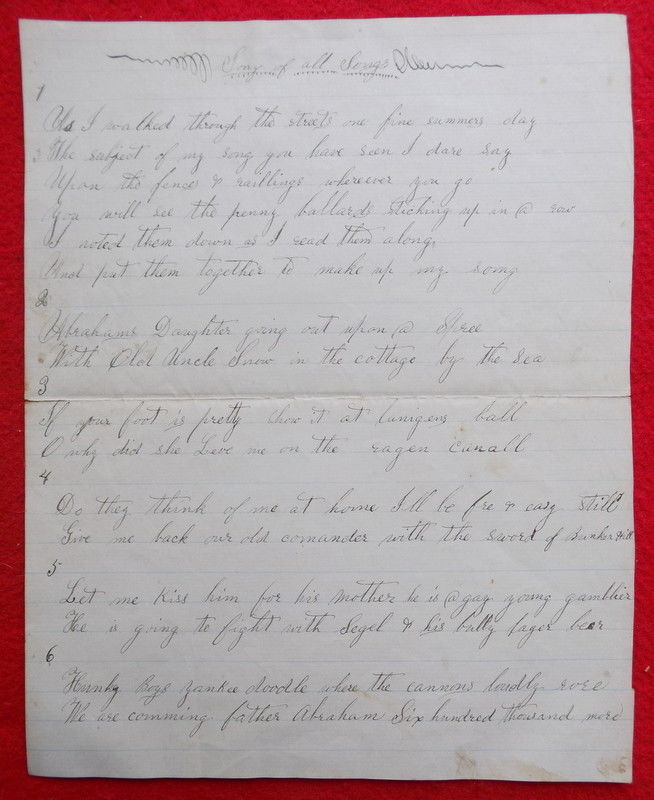 Song of all Songs
1
As I walked through the streets one fine summers day
The subject of my song you have seen I dare say
Upon the fences & raillings whereever you go
you will see the penny ballards sticking up in a row
I noted them down as I read them along,
And put them together to make up my song
2
Abrahams Daughter going out upon a Spree
With Old Uncle Snow in the cottage by the Sea
3
If your foot is pretty show it at Lanigens ball
O why did she Leve me on the ragen canall
4
Do they think of me at home I'll be fre & easy still
Give me back our old comander with the sword of Bunker Hill
5
Let me Kiss him for his Mother he is a gay young gamblier
He is going to fight with Segel & his bully lager beer
6
Hunky Boys yankee doodle where the cannons loudly rore
We are comming father Abraham Six hundred thousand more